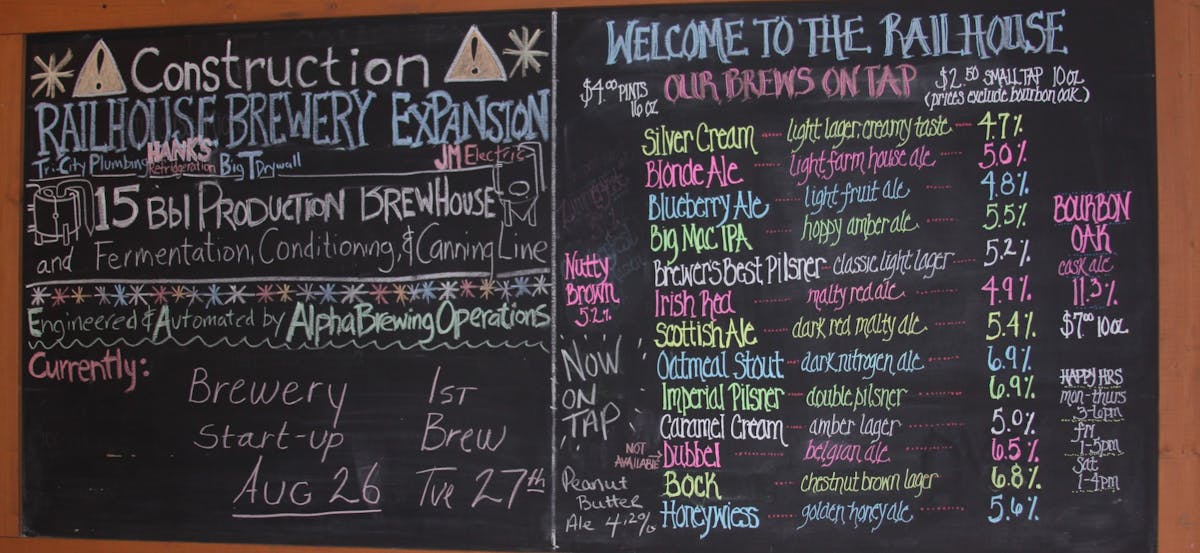 Construction
RAILHOUSE BREWERY EXPANSION
Tri-City Plumbing HANK'S Refridgeration Big T Drywall JM Electric
15 Bbl PRODUCTION BREWHOUSE
and Fermentation, Conditioning, & Canning Line
Engineered & Automated by Alpha Brewing Operations
Currently:
Brewery
Start-up
AUG 26
1ST
Brew
Tue 27th
WELCOME TO THE RAILHOUSE
$4.00 PINTS
16 OZ
OUR BREWS ON TAP
$2.50 SMALL TAP 10 OZ
(prices exclude bourbon oak)
Silver Cream light lager, creamy taste 4.7%
Blonde Ale light farm house ale 5.0%
Blueberry Ale light fruit ale 4.8%
Big Mac IPA hoppy amber ale 5.5%
Brewer's Best Pilsner classic light lager 5.2%
Irish Red malty red ale 4.9%
Scottish Ale dark red malty ale 5.4%
Oatmeal Stout dark nitrogen ale 6.9%
Imperial Pilsner double pilsner 6.9%
Caramel Cream amber lager 5.0%
NOT AVAILABLE Dubbel belgian ale 6.5%
Bock chestnut brown lager 6.8%
Honeywiess golden honey ale 5.6%
Nutty
Brown
5.2%
NOW
ON
TAP
Peanut
Butter
Ale 4.20%
BOURBON
OAK
cask ale
11.3%
$7.00 10 oz
HAPPY HRS
mon-thurs
3-6pm
fri
1-5pm
Sat
1-4pm